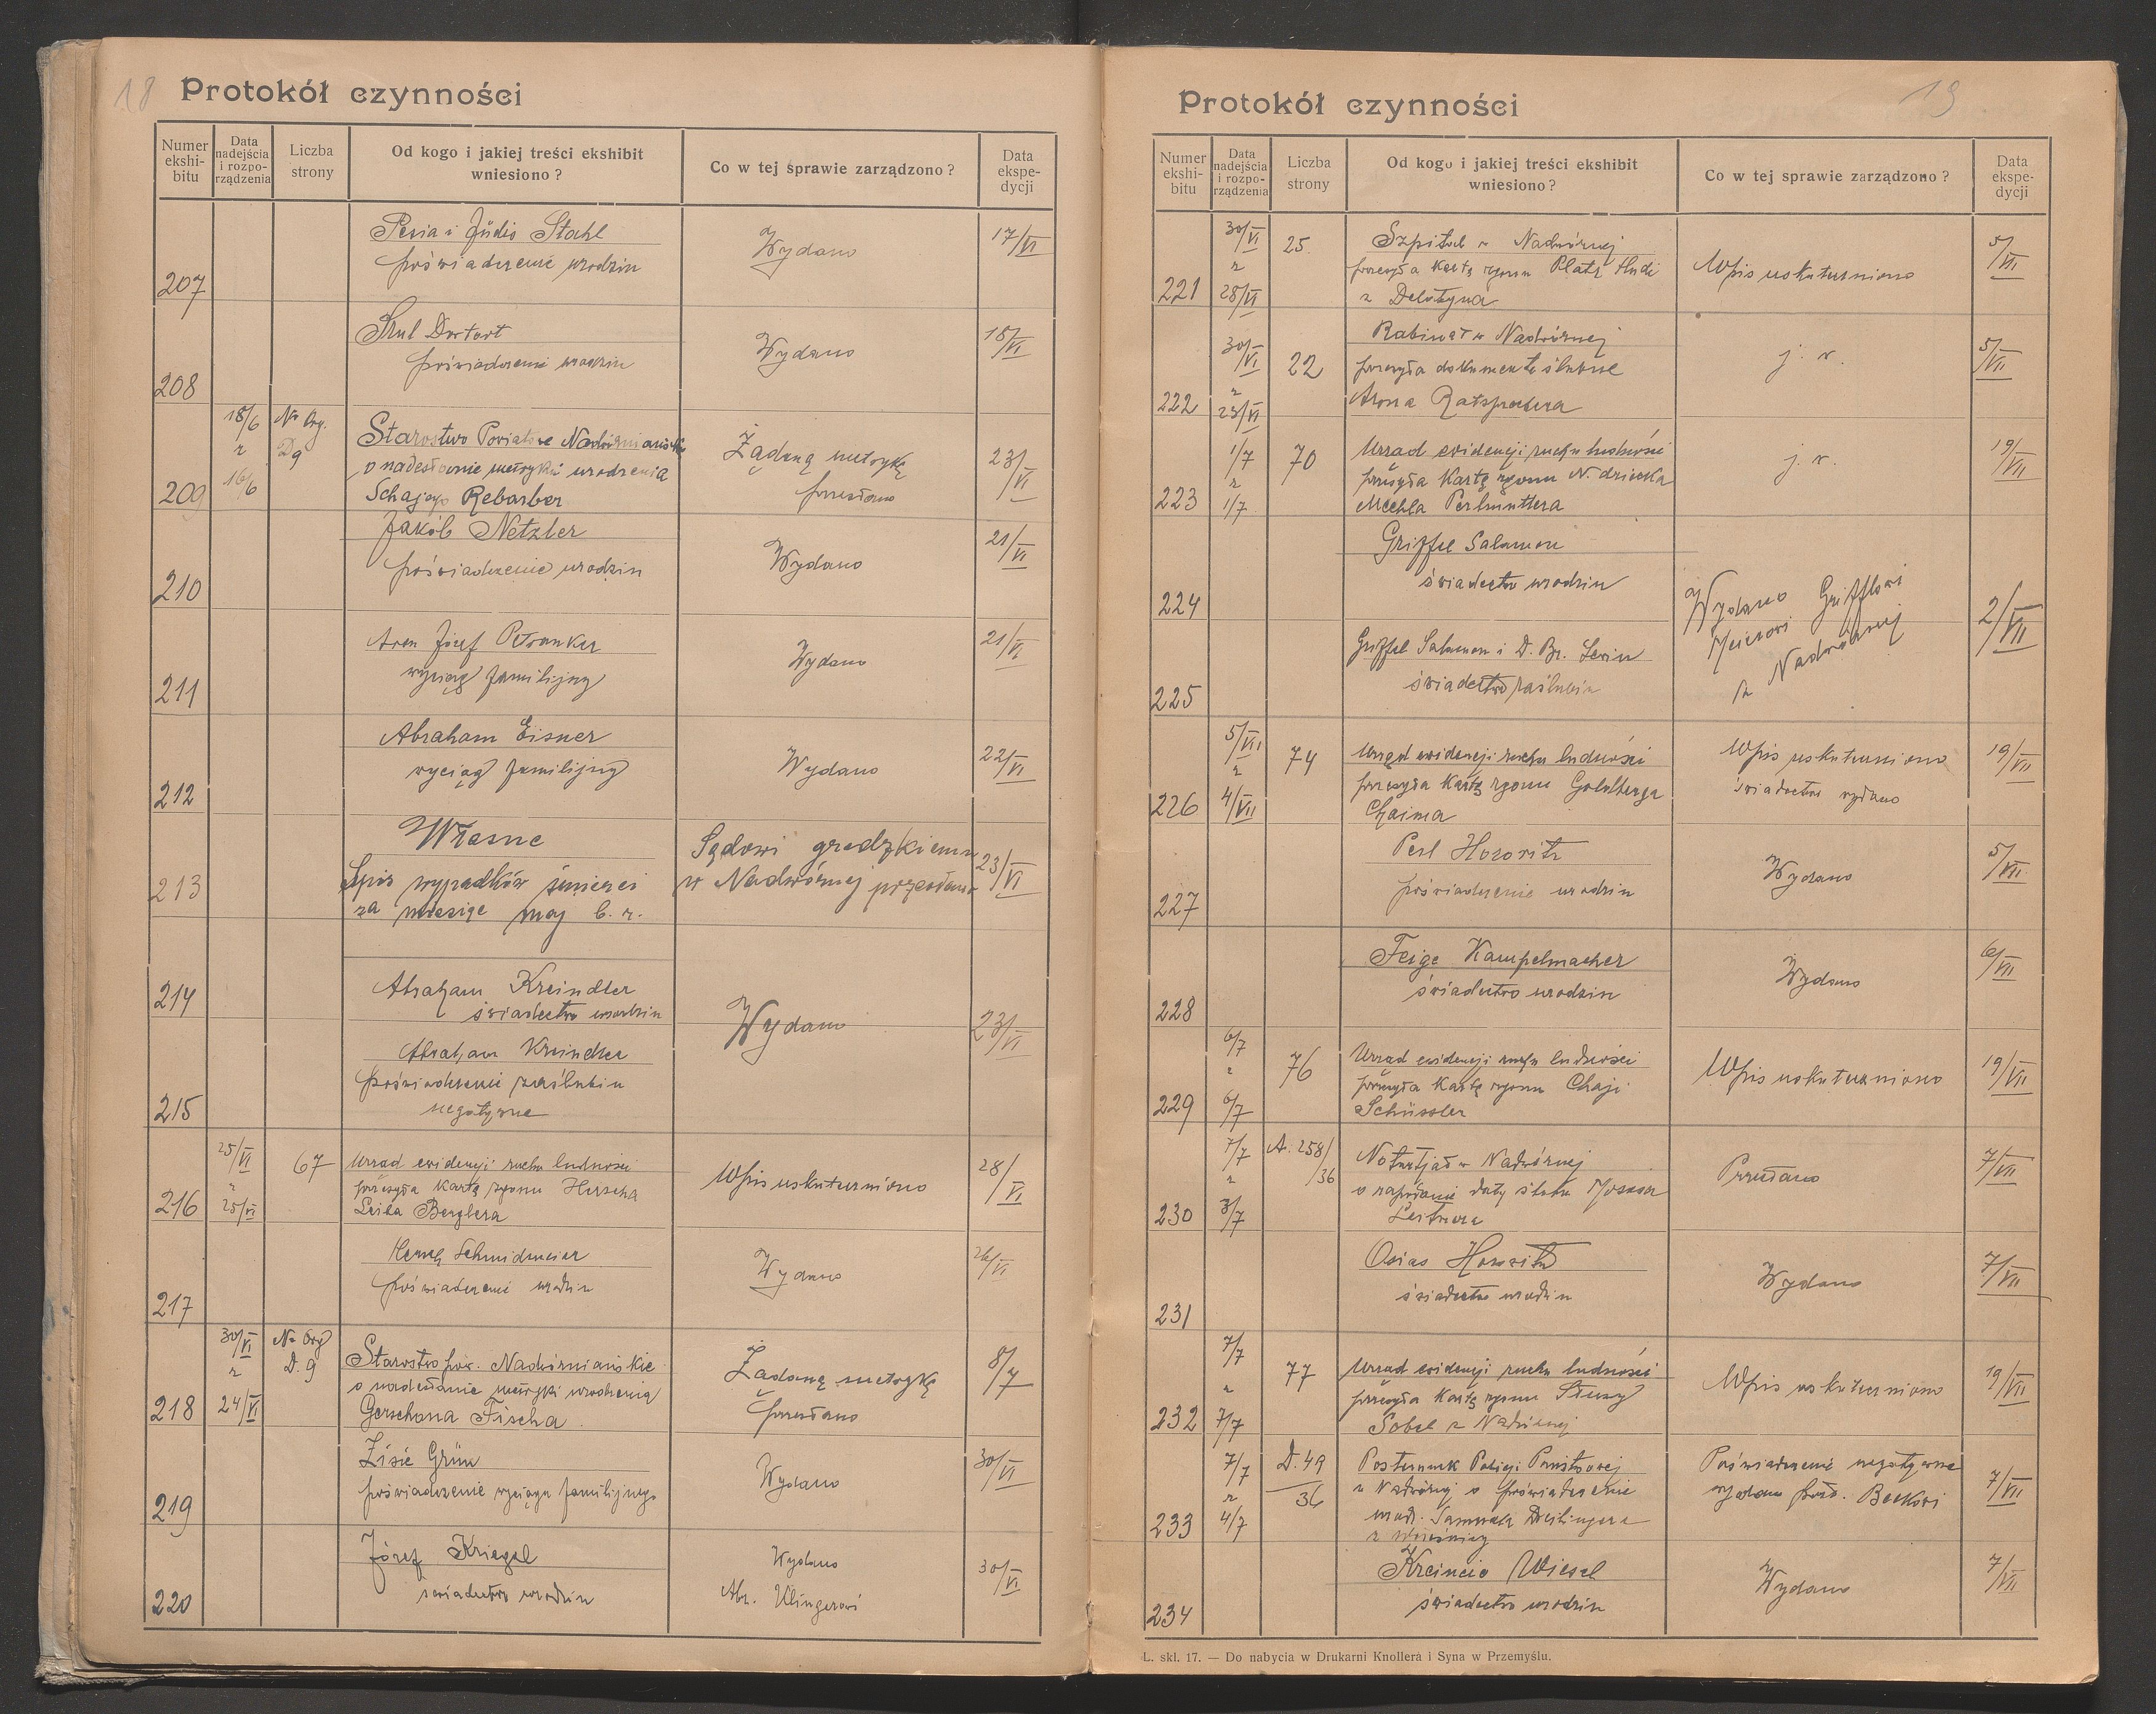 18
Protokół czynności
Numer ekshi-bitu
Data nadejścia i rozpo-rządzenia
Liczba strony
Od kogo i jakiej treści ekshibit wniesiono?
Co w tej sprawie zarządzono?
Data ekspe-dycji
207 Pesia i Jüdis Stahl Wydano 17/VI
poświadczenie urodzin
208 Srul Dortort Wydano 18/VI
poświadczenie urodzin
209 18/6 z 16/6 No Org. D9
Starostwo Powiatowe Nadwórniańskie Żądaną metrykę 23/VI
o nadesłanie metryki urodzenia przesłano
Schajego Rebarber
210 Jakób Netzler Wydano 21/VI
poświadczenie urodzin
211 Aron Józef Petranker Wydano 21/VI
wyciąg familijny
212 Abraham Eisner Wydano 22/VI
wyciąg familijny
213 Własne Sądowi grodzkiemu 23/VI
Spis wypadków śmierci w Nadwórnej przesłano
za miesiąc maj b. r.
214 Abraham Kreindler Wydano 23/VI
świadectwo urodzin
215 Abraham Kreindler
poświadczenie zaślubin
negatywne
216 25/VI z 25/VI 67 Urząd ewidencji ruchu ludności Wpis uskuteczniono 28/VI
przesyła kartę zgonu Herscha
Leiba Berglera
217 Hersch Schmidmeier Wydano 26/VI
poświadczenie urodzin
218 30/VI z 24/VI No Org D.9
Starostwo pow. Nadwórniańskie Żądaną metrykę 8/7
o nadesłanie metryki urodzenia przesłano
Gerschona Fischa
219 Zisie Grün Wydano 30/VI
poświadczenie wyciągu familijnego
220 Józef Kriegel Wydano 30/VI
świadectwo urodzin Abr. Klingerowi
19
Protokół czynności
Numer ekshi-bitu
Data nadejścia i rozpo-rządzenia
Liczba strony
Od kogo i jakiej treści ekshibit wniesiono?
Co w tej sprawie zarządzono?
Data ekspe-dycji
221 30/VI z 28/VI 25 Szpital w Nadwórnej Wpis uskuteczniono 5/VII
przesyła kartę zgonu
z Delatyna
222 30/VI z 23/VI 22 Rabinat w Nadwórnej j. w. 5/VII
przesyła dokumenta ślubne
Arona
223 1/7 z 1/7 70 Urząd ewidencji ruchu ludności j. w. 19/VII
przesyła kartę zgonu N. dziecka
Mechla Perlmuttera
224 Griffel Salamon Wydano Grifflowi 2/VII
świadectwo urodzin Meierowi
z Nadwórnej
225 Griffel Salamon i D. Br. Lewin
świadectwo zaślubin
226 5/VII z 4/VII 74 Urząd ewidencji ruchu ludności Wpis uskuteczniono 19/VII
przesyła kartę zgonu Goldberga świadectwo wydano
Chaima
227 Perl Horowitz Wydano 5/VII
poświadczenie urodzin
228 Feige Kampelmacher Wydano 6/VII
świadectwo urodzin
229 6/7 z 6/7 76 Urząd ewidencji ruchu ludności Wpis uskuteczniono 19/VII
przesyła kartę zgonu Chaji
Schüssler
230 7/7 z 3/7 A. 258/36 Notarjat w Nadwórnej Przesłano 7/VII
o zapodanie daty ślubu Moszka
Leitnera
231 Osias Horowitz Wydano 7/VII
świadectwo urodzin
232 7/7 z 7/7 77 Urząd ewidencji ruchu ludności Wpis uskuteczniono 19/VII
przesyła kartę zgonu
Sobel z Nadwórnej
233 7/7 z 4/7 D.49/36 Posterunek Policji Państwowej Poświadczenie negatywne 7/VII
w Nadwórnej o poświadczenie wydano Beckowi
urodz. Samuela
234 Kreincie Wiesel Wydano 7/VII
świadectwo urodzin
L. skl. 17. — Do nabycia w Drukarni Knollera i Syna w Przemyślu.